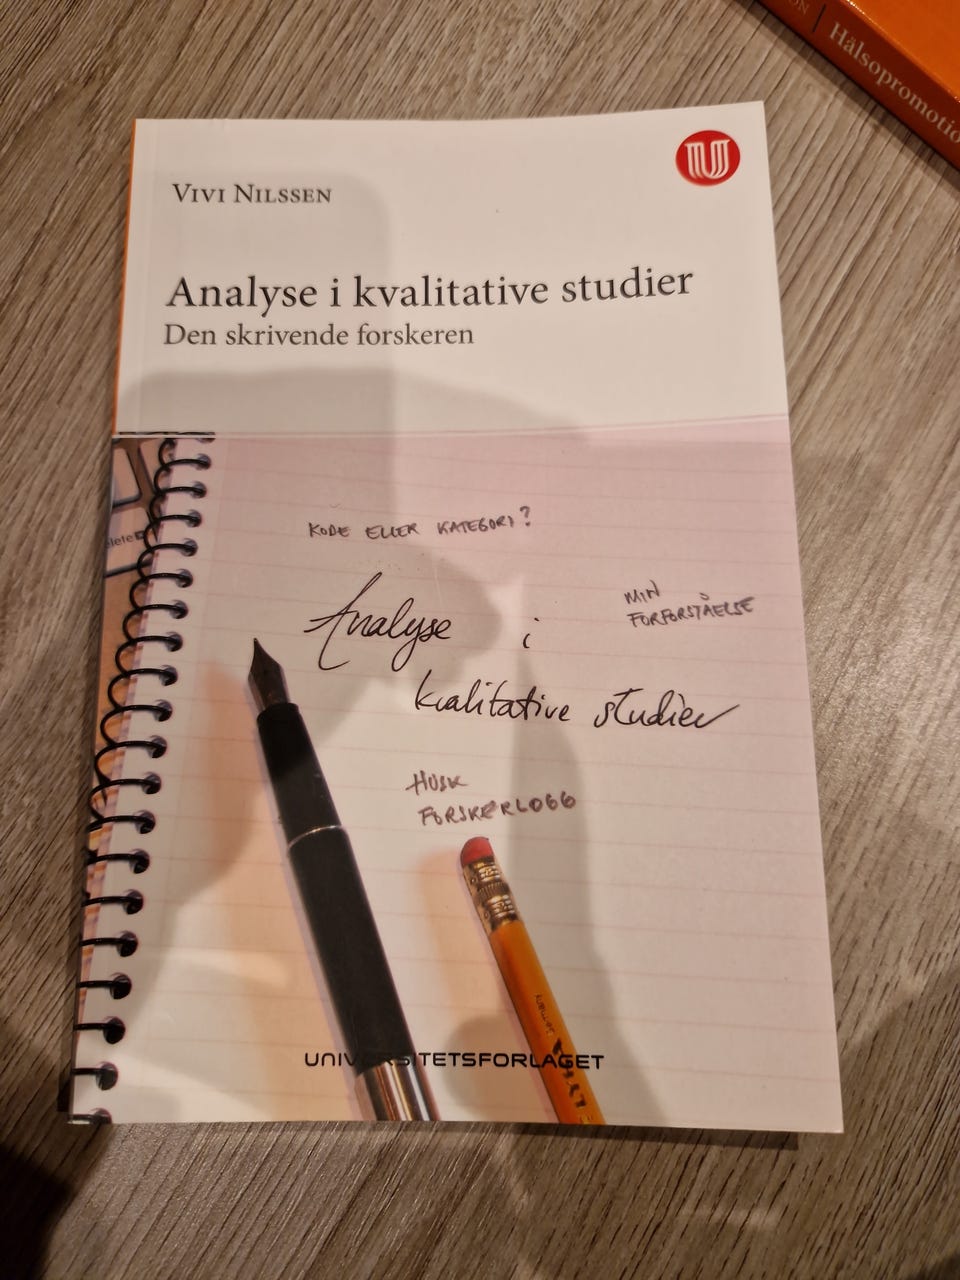 Hälsopromotio
VIVI NILSSEN
Analyse i kvalitative studier
Den skrivende forskeren
KODE ELLER KATEGORI?
MIN
FORFORSTÅELSE
Analyse i
kvalitative studier
HUSK
FORSKERLOGG
Germany
UNIVERSITETSFORLAGET